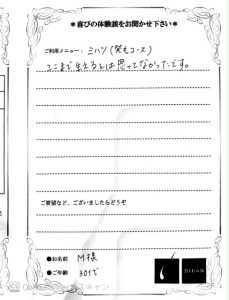 ＊喜びの体験談をお聞かせ下さい＊
ご利用メニュー： ミハツ(発毛コース)
ここまで生えるとは思ってなかったです。
ご要望など、ございましたらどうぞ
●お名前 M様
●ご年齢 30代
DIRAN
スキャン